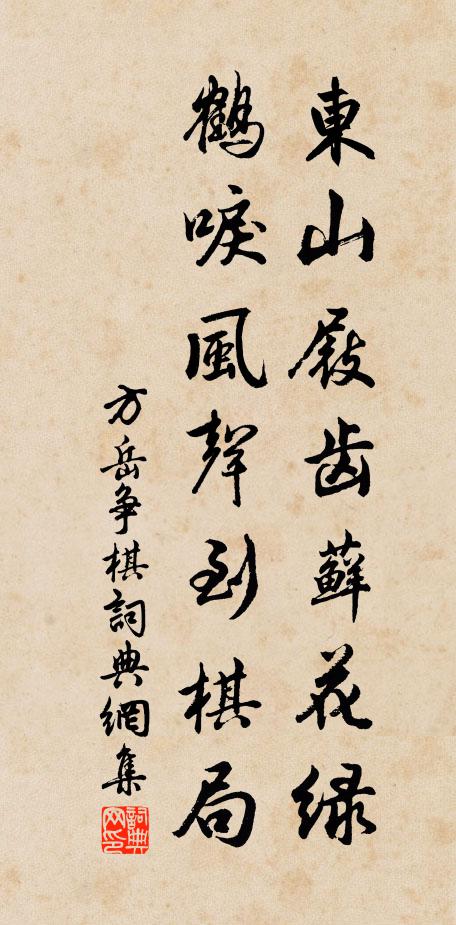 東山屐齿蘚花緑
鶴唳風聲到棋局
方岳争棋詞典網集
詞典
网印